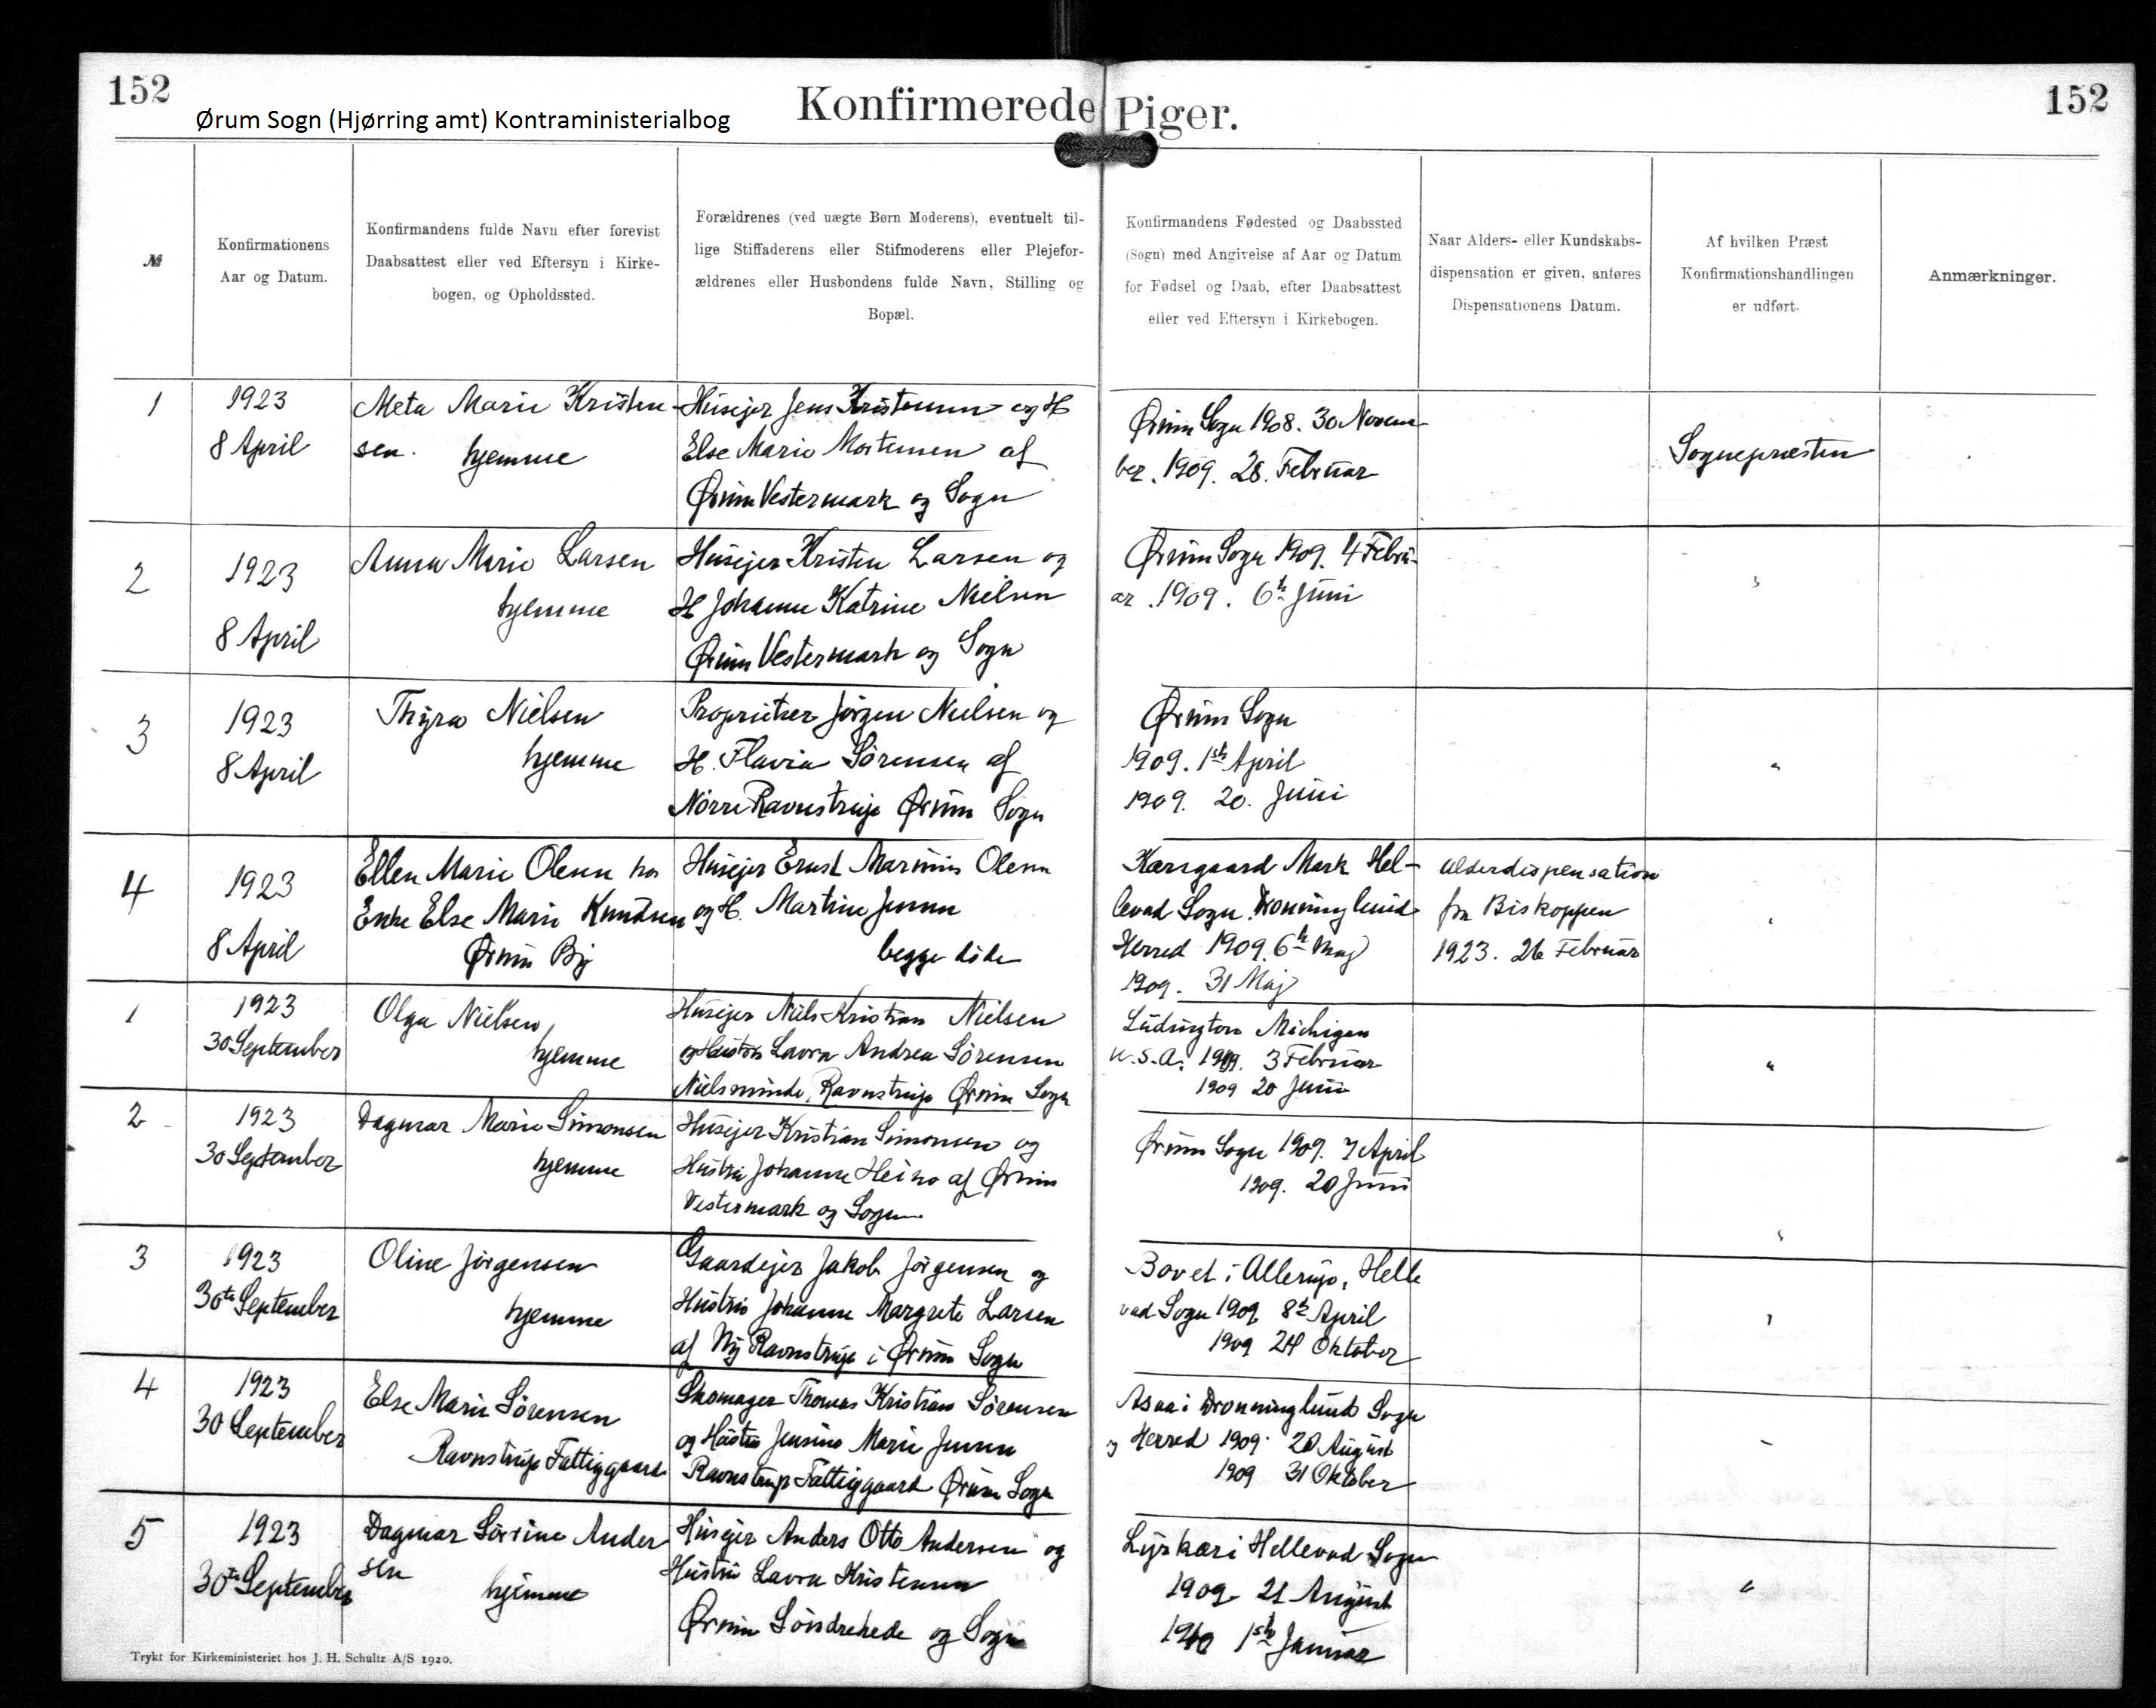 152
Ørum Sogn (Hjørring amt) Kontraministerialbog
Konfirmerede Piger.
152
№
Konfirmationens
Aar og Datum.
Konfirmandens fulde Navn efter forevist
Daabsattest eller ved Eftersyn i Kirke-
bogen, og Opholdssted.
Forældrenes (ved uægte Børn Moderens), eventuelt til-
lige Stiffaderens eller Stifmoderens eller Plejefor-
ældrenes eller Husbondens fulde Navn, Stilling og
Bopæl.
Konfirmandens Fødested og Daabssted
(Sogn) med Angivelse af Aar og Datum
for Fødsel og Daab, efter Daabsattest
eller ved Eftersyn i Kirkebogen.
Naar Alders- eller Kundskabs-
dispensation er given, anføres
Dispensationens Datum.
Af hvilken Præst
Konfirmationshandlingen
er udført.
Anmærkninger.
1
1923
8 April
Meta Marie Kristen-
sen. hjemme
Husejer Jens Kristensen og H
Else Marie Mortensen af
Ørum Vestermark og Sogn
Ørum Sogn 1908. 30 Novem
ber. 1909. 28. Februar
Sognepræsten
2
1923
8 April
Anna Marie Larsen
hjemme
Husejer Kristen Larsen og
H Johanne Katrine Nielsen
Ørum Vestermark og Sogn
Ørum Sogn 1909. 4 Febru-
ar. 1909. 6te Juni
"
3
1923
8 April
Thyra Nielsen
hjemme
Proprietær Jörgen Nielsen og
H. Flavia Sörensen af
Nörre Ravnstrup Ørum Sogn
Ørum Sogn
1909. 1ste April
1909. 20. Juni
"
4
1923
8 April
Ellen Marie Olesen hos
Enke Else Marie Knudsen
Ørum By
Husejer Ernst Marinus Olesen
og H. Martine Jensen
begge döde
Kærsgaard Mark Hel-
levad Sogn Dronninglund
Herred 1909. 6te Maj
1909. 31 Maj
Alderdispensation
fra Biskoppen
1923. 26 Februar
"
1
1923
30 September
Olga Nielsen
hjemme
Husejer Niels Kristian Nielsen
og Hustru Laura Andrea Sörensen
Nielsminde, Ravnstrup Ørum Sogn
Ludington Michigan
U.S.A. 1909. 3 Februar
1909 20 Juni
"
2
1923
30 September
Dagmar Marie Simonsen
hjemme
Husejer Kristian Simonsen og
Hustru Johanne Heino af Ørum
Vestermark og Sogn
Ørum Sogn 1909. 7 April
1909. 20 Juni
"
3
1923
30te September
Oline Jörgensen
hjemme
Gaardejer Jakob Jörgensen og
Hustru Johanne Margrete Larsen
af Ny Ravnstrup i Ørum Sogn
Bovet i Allerup, Helle
vad Sogn 1909 8de April
1909 24 Oktober
"
4
1923
30 September
Else Marie Sörensen
Ravnstrup Fattiggaard
Skomager Thomas Kristian Sörensen
og Hustru Jensine Marie Jensen
Ravnstrup Fattiggaard Ørum Sogn
Asaa i Dronninglund Sogn
og Herred 1909. 20 August
1909 31 Oktober
"
5
1923
30te September
Dagmar Sörrine Ander
sen hjemme
Husejer Anders Otto Andersen og
Hustru Laura Kristensen
Ørum Söndrehede og Sogn
Lyrkær i Hellevad Sogn
1909 21 August
1910 1ste Januar
"
Trykt for Kirkeministeriet hos J. H. Schultz A/S 1920.